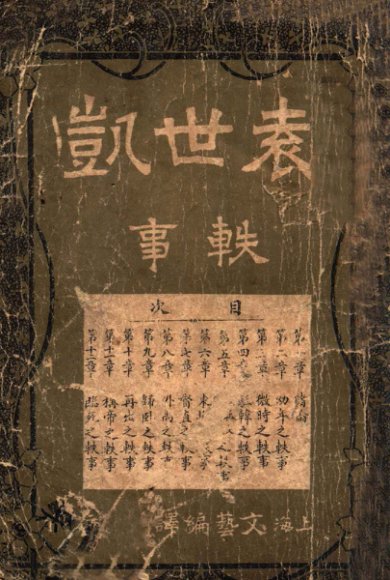 袁世凱
軼事
目次
第一章 緒論
第二章 幼年之軼事
第三章 微時之軼事
第四章 韓之軼事
第五章 之軼事
第六章 東
第七章 督直之軼事
第八章 外 之軼事
第九章 歸田之軼事
第十章 再出之軼事
第十一章 稱帝之軼事
第十二章 臨死之軼事
上海文藝編譯